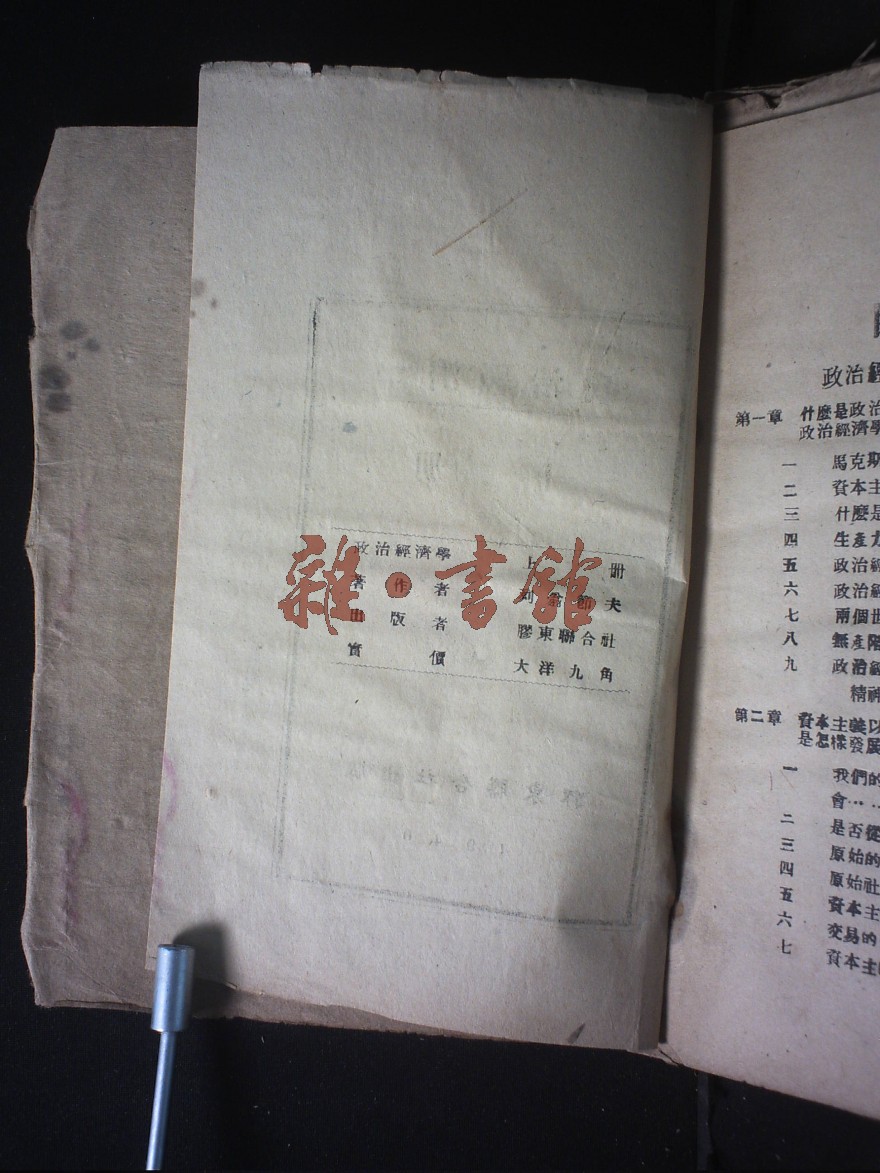 政治經濟學 上册
著作者
出版者 膠東聯合社
實價 大洋九角
雜·書館
政治經
第一章 什麼是政治
政治經濟學
一 馬克斯
二 資本主
三 什麼是
四 生產力
五 政治經
六 政治經
七 兩個世
八 無產階
九 政治經
精神
第二章 資本主義以
是怎樣發展
一 我們的
會……
二 是否從
三 原始的
四 原始社
五 資本主
六 交易的
七 資本主